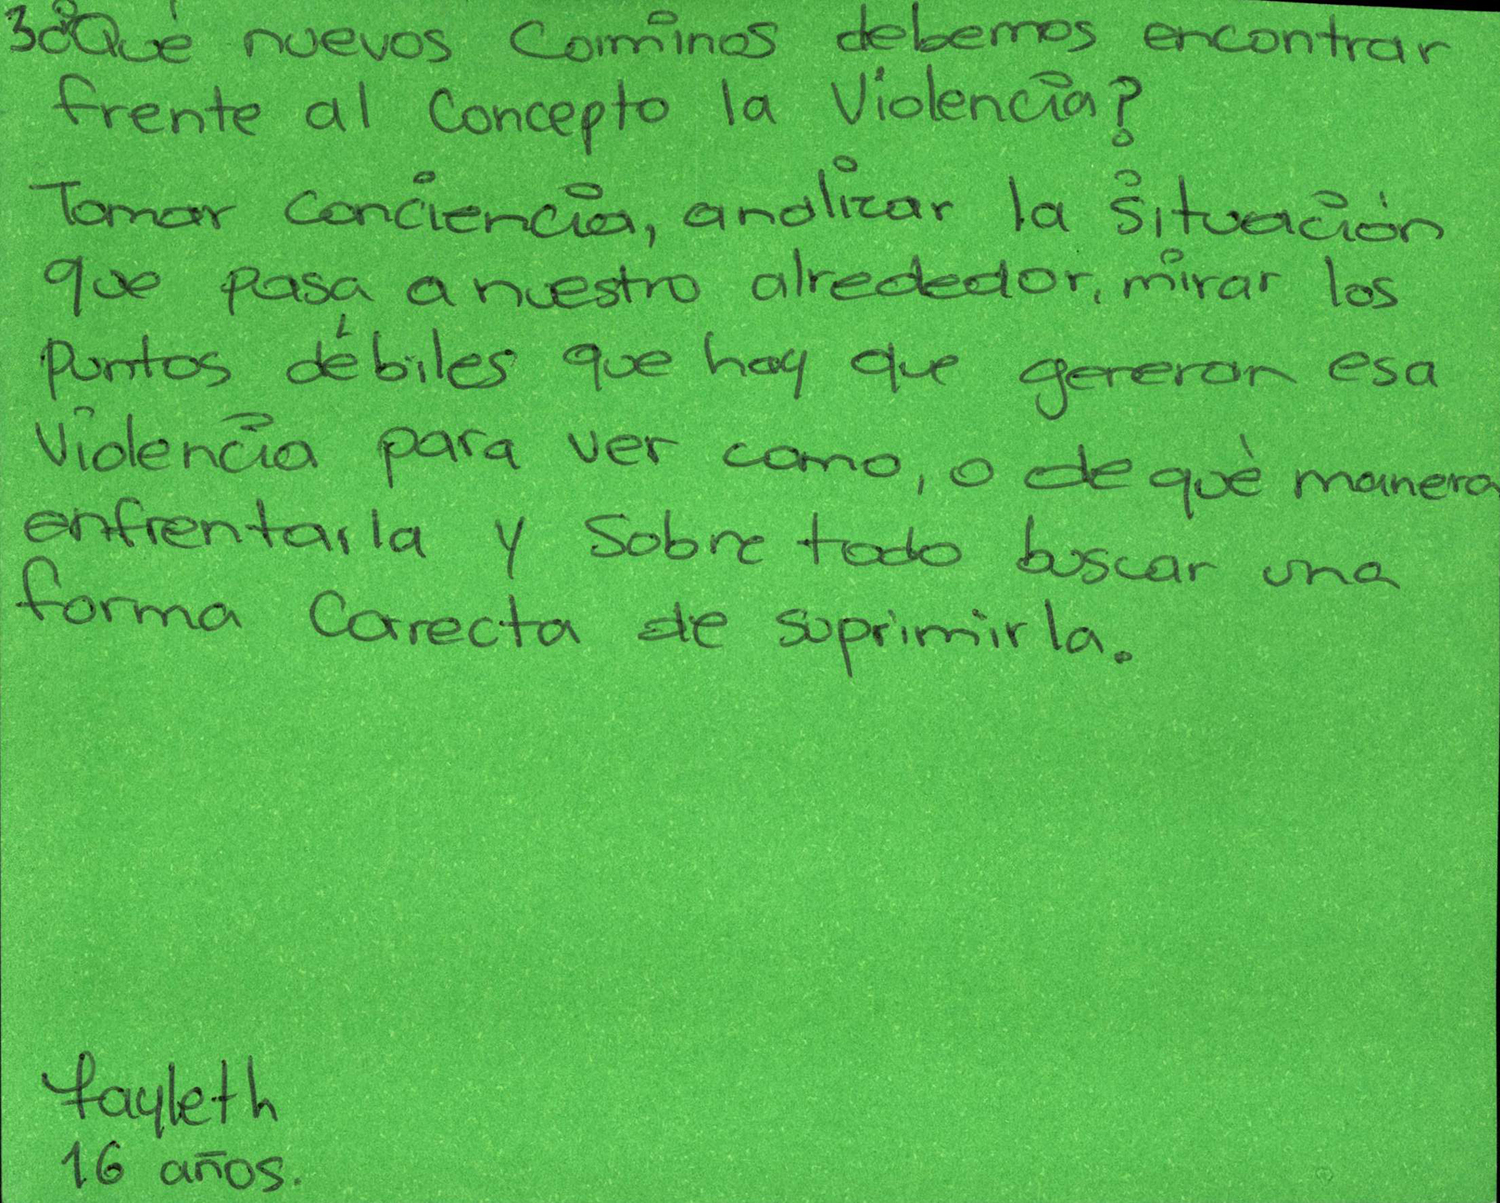 3 ¿Qué nuevos caminos debemos encontrar
frente al concepto la violencia?
Tomar conciencia, analizar la situación
que pasa a nuestro alrededor, mirar los
puntos débiles que hay que generan esa
violencia para ver como, o de què manera
enfrentarla y sobre todo buscar una
forma correcta de suprimirla.
Yayleth
16 años.